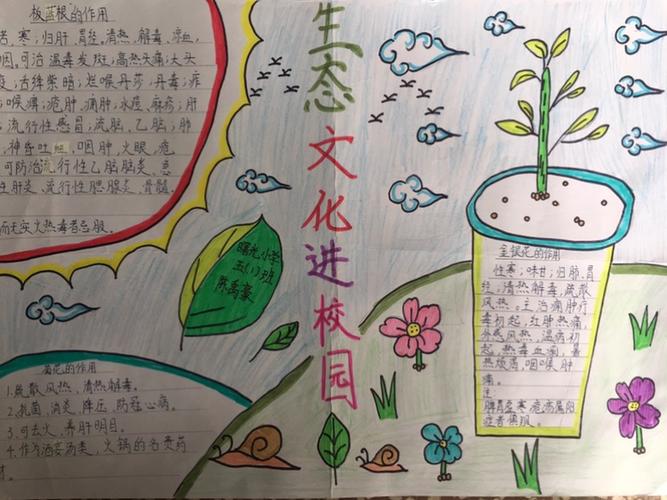 板蓝根的作用
苦、寒；归肝、胃经。清热、解毒、凉血、
咽。可治温毒发斑；高热头痛；大头
疫；舌绛紫暗；烂喉丹痧；丹毒；痄
；喉痹；疮肿、痈肿；水痘、麻疹；肝
；流行性感冒；流脑、乙脑；肺
、神昏吐血、咽肿、火眼、疮
可防治流行性乙脑脑炎、急
性肝炎、流行性腮腺炎、骨髓
而无实火热毒者忌服。
生态文化进校园
曙光小学
五(1)班
陈禹豪
菊花的作用
1.疏散风热、清热解毒。
2.抗菌、消炎、降压、防冠心病。
3.可去火、养肝明目。
4.作为汤类、火锅的名贵药
材。
金银花的作用
性寒；味甘；归肺、胃
经；清热解毒、疏散
风热。主治痈肿疔
毒初起，红肿热痛，
外感风热，温病初
起，热毒血痢，暑
热烦渴，咽喉肿
痛。
注
脾胃虚寒、疮疡属阴
证者慎服。